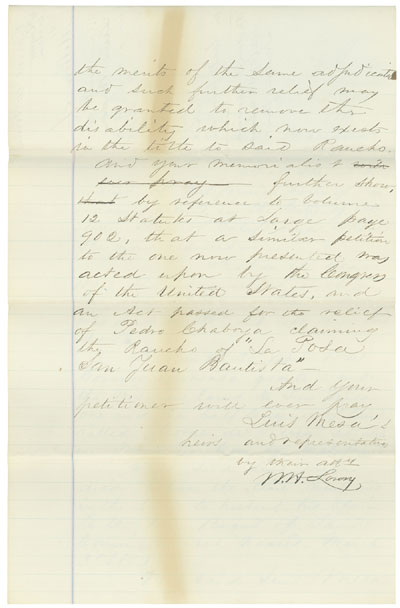 the merits of the same adjudicated
and such further relief may
be granted to remove the
disability which now exists
in the title to said Rancho.
And your memorialist
pray further show,
that by reference to Volume
12 Statutes at Large page
902, that a similar petition
to the one now presented was
acted upon by the Congress
of the United States, and
an Act passed for the relief
of Pedro Chaboya claiming
the Rancho of "La Posa
San Juan Bautista" —
And your
petitioner will ever pray
Luis Mesa's
heirs and representatives
by their atty
W.H.